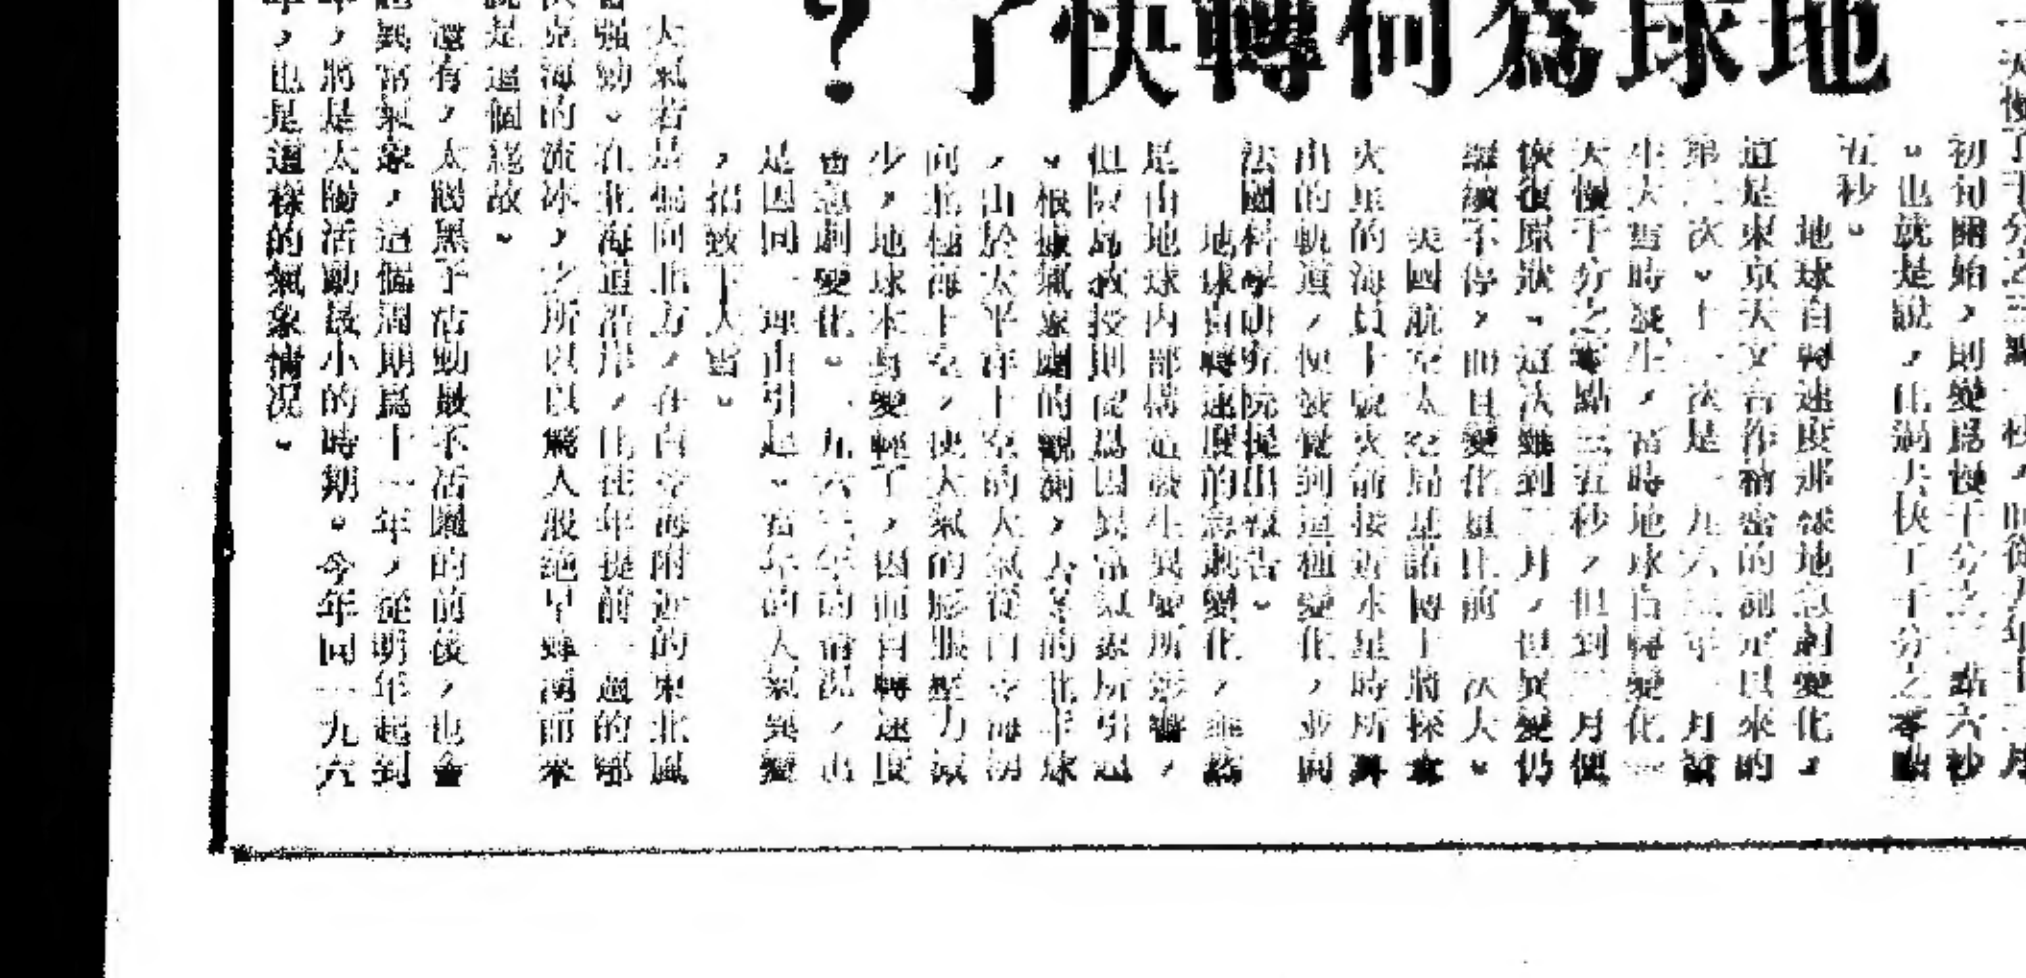 地球爲何轉快了？
一天慢了千分之三點
初旬開始，則變爲慢千分之二點六秒
。也就是說，比過去快了千分之零點
五秒。
地球自轉速度那樣地急劇變化，
這是東京天文台作精密的測定以來的
第二次。十一次是一九六三年一月當
生大雪時發生，當時地球自轉變化一
天慢千分之零點三五秒，但到二月便
恢復原狀。這次雖到二月，但異變仍
繼續不停，而且變化量比前　次大。
美國航空太空局星諾博士將探查
火星的海員十號火箭接近水星時所算
出的軌道，使發覺到這種變化，並向
法國科學研究院提出報告。
地球自轉速度的急劇變化，雖然
是由地球內部構造發生異變所影響，
但阪島教授則認爲因異常氣象所引起
。根據氣象廳的觀測，去冬的北半球
，由於太平洋上空的大氣從白令海沿
向北極海上空，使大氣的膨脹壓力減
少，地球本身變輕了，因而自轉速度
會急劇變化。一九六三年的情況，也
是因同一理由引起。當年的大氣異變
，招致下大雪。
大氣若是偏向北方，在白令海附近的東北風
強勁。在北海道沿岸，比往年提前一週的鄂
克海的流冰，之所以以驚人般絕早蜂湧而來
是這個緣故。
還有，太陽黑子活動最不活躍的前後，也會
異常氣象，這個周期爲十一年，從明年起到
，將是太陽活動最小的時期。今年同一九六
年，也是這樣的氣象情況。